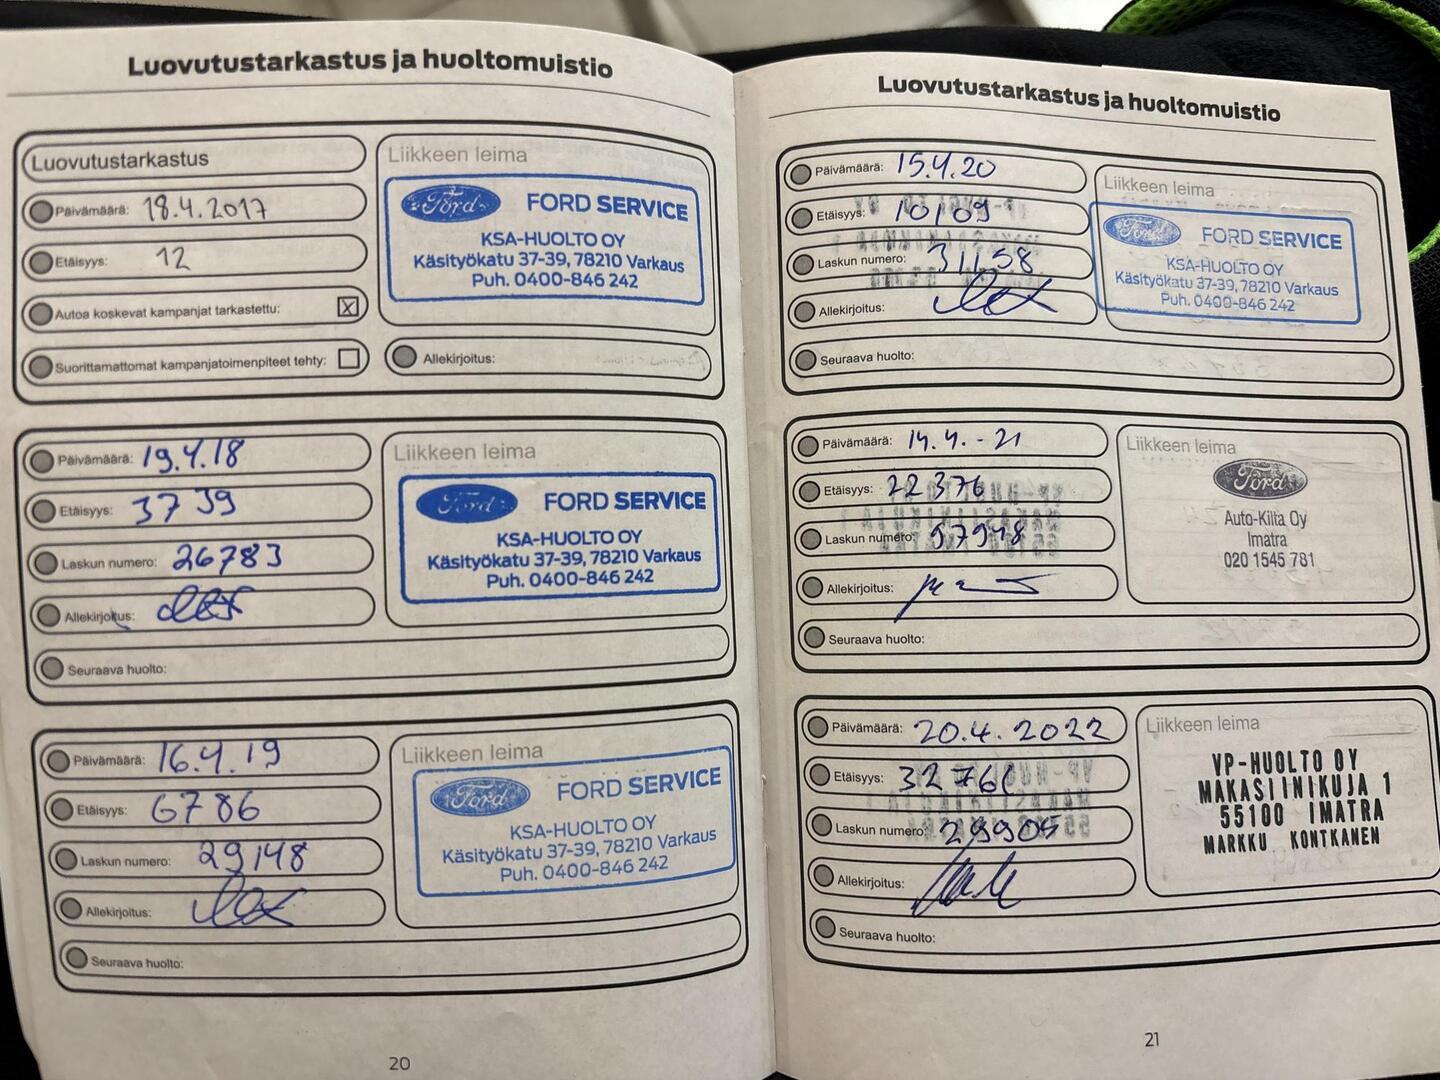 Luovutustarkastus ja huoltomuistio
Luovutustarkastus
Päivämäärä: 18.4.2017
Etäisyys: 12
Autoa koskevat kampanjat tarkastettu: X
Suorittamattomat kampanjatoimenpiteet tehty:
Liikkeen leima
Ford FORD SERVICE
KSA-HUOLTO OY
Käsityökatu 37-39, 78210 Varkaus
Puh. 0400-846 242
Allekirjoitus:
Päivämäärä: 19.4.18
Etäisyys: 3739
Laskun numero: 26783
Allekirjoitus:
Seuraava huolto:
Liikkeen leima
Ford FORD SERVICE
KSA-HUOLTO OY
Käsityökatu 37-39, 78210 Varkaus
Puh. 0400-846 242
Päivämäärä: 16.4.19
Etäisyys: 6786
Laskun numero: 29148
Allekirjoitus:
Seuraava huolto:
Liikkeen leima
Ford FORD SERVICE
KSA-HUOLTO OY
Käsityökatu 37-39, 78210 Varkaus
Puh. 0400-846 242
20
Luovutustarkastus ja huoltomuistio
Päivämäärä: 15.4.20
Etäisyys: 10109
Laskun numero: 31158
Allekirjoitus:
Seuraava huolto:
Liikkeen leima
Ford FORD SERVICE
KSA-HUOLTO OY
Käsityökatu 37-39, 78210 Varkaus
Puh. 0400-846 242
Päivämäärä: 14.4.-21
Etäisyys: 22376
Laskun numero: 97948
Allekirjoitus:
Seuraava huolto:
Liikkeen leima
Ford
Auto-Kilta Oy
Imatra
020 1545 781
Päivämäärä: 20.4.2022
Etäisyys:
Laskun numero: 29905
Allekirjoitus:
Seuraava huolto:
Liikkeen leima
VP-HUOLTO OY
MAKASIINIKUJA 1
55100 IMATRA
MARKKU KONTKANEN
21